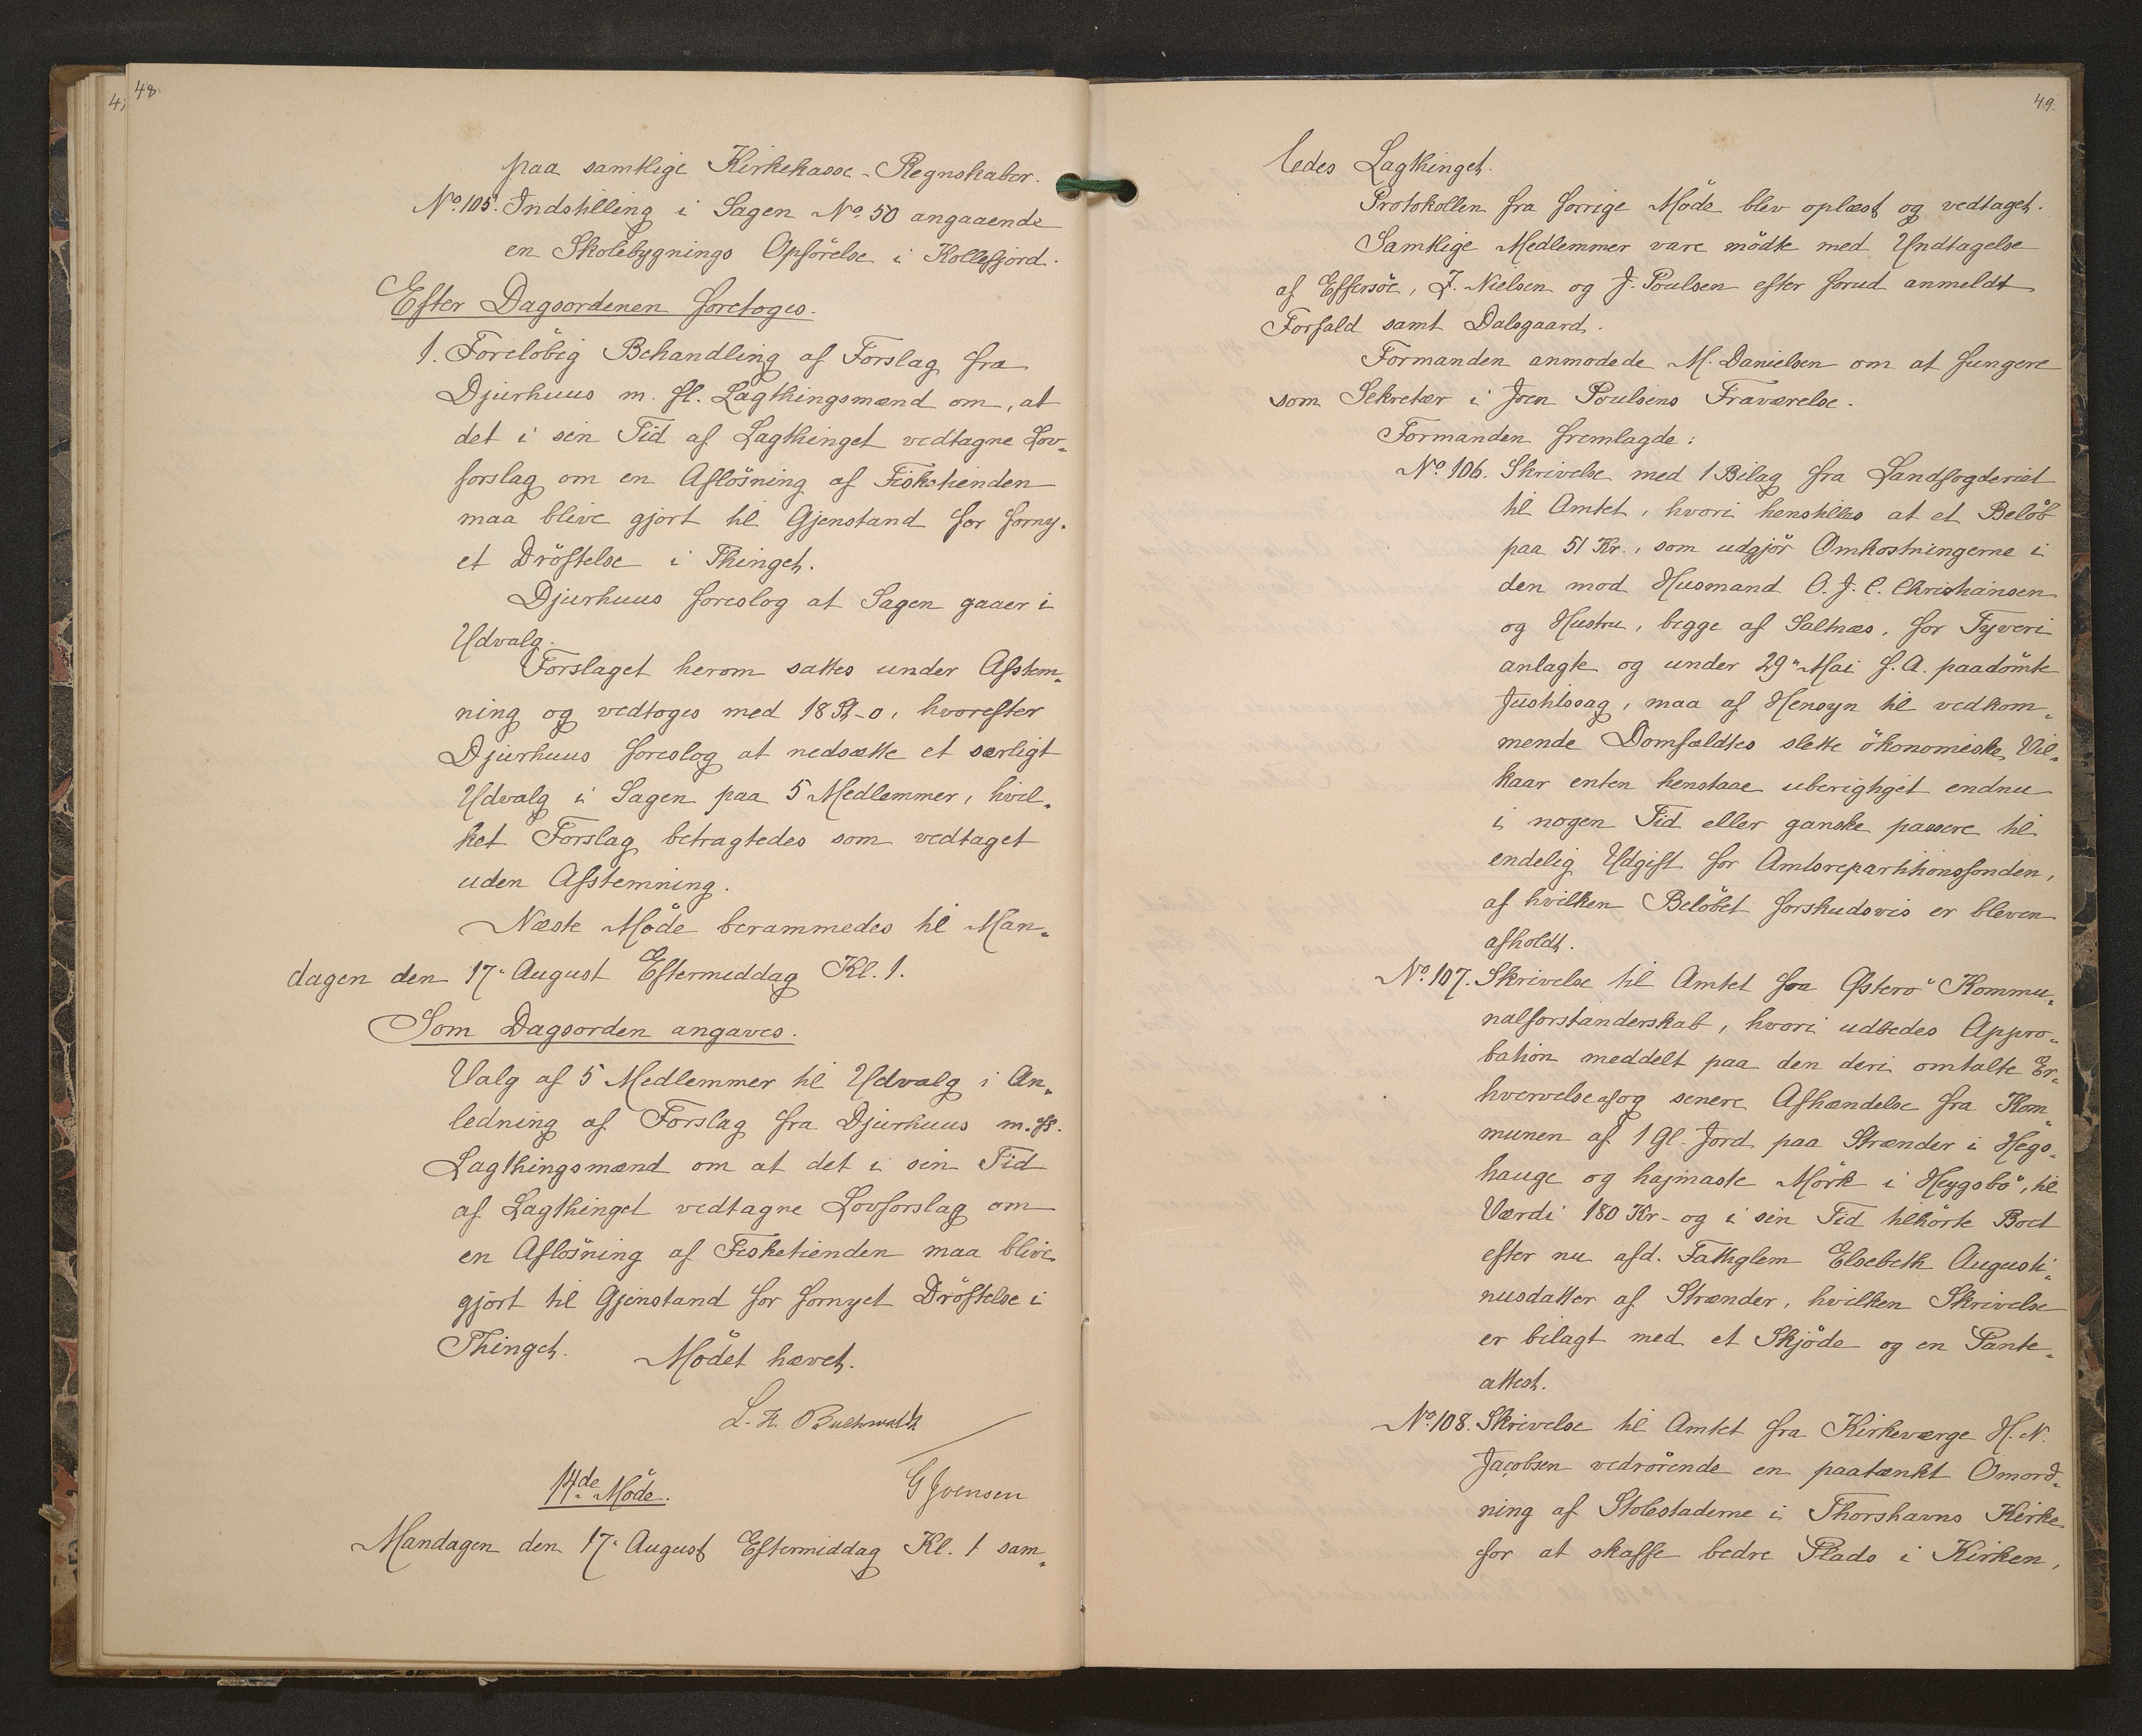 48.
paa samtlige Kirkekasse-Regnskaber.
No. 105. Indstilling i Sagen No. 50 angaaende
en Skolebygnings Opförelse i Kollefjord.
Efter Dagsordenen foretoges.
1. Foreløbig Behandling af Forslag fra
Djurhuus m. fl. Lagthingsmænd om, at
det i sin Tid af Lagthinget vedtagne Lov-
forslag om en Aflösning af Fisketienden
maa blive gjort til Gjenstand for forny-
et Dröftelse i Thinget.
Djurhuus foreslog at Sagen gaaer i
Udvalg.
Forslaget herom sattes under Afstem-
ning og vedtoges med 18 St-0, hvorefter
Djurhuus foreslog at nedsætte et særligt
Udvalg i Sagen paa 5 Medlemmer, hvil-
ket Forslag betragtedes som vedtaget
uden Afstemning.
Næste Möde berammedes til Man-
dagen den 17. August Eftermiddag Kl. 1.
Som Dagsorden angaves.
Valg af 5 Medlemmer til Udvalg i An-
ledning af Forslag fra Djurhuus m. fl.
Lagthingsmænd om at det i sin Tid
af Lagthinget vedtagne Lovforslag om
en Aflösning af Fisketienden maa blive
gjort til Gjenstand for fornyet Dröftelse i
Thinget. Mödet hævet.
L. H. Buchwaldt
G Joensen
14de Möde.
Mandagen den 17. August Eftermiddag Kl. 1 sam-
49.
ledes Lagthinget.
Protokollen fra forrige Möde blev oplæst og vedtaget.
Samtlige Medlemmer vare mödte med Undtagelse
af Effersöe, J. Nielsen og J. Poulsen efter forud anmeldt
Forfald samt Dalsgaard.
Formanden anmodede M. Danielsen om at fungere
som Sekretær i Joen Poulsens Fraværelse.
Formanden fremlagde:
No. 106. Skrivelse med 1 Bilag fra Landfogderiet
til Amtet, hvori henstilles at et Belöb
paa 51 Kr., som udgjör Omkostningerne i
den mod Husmand O. J. C. Christiansen
og Hustru, begge af Saltnæs, for Tyveri
anlagte og under 29" Mai f. A. paadömte
Justitssag, maa af Hensyn til vedkom-
mende Domfældtes slette ökonomiske Vil-
kaar enten henstaae uberigtiget endnu
i nogen Tid eller ganske passere til
endelig Udgift for Amtsrepartitionsfonden,
af hvilken Belöbet forskudsvis er bleven
afholdt.
No. 107. Skrivelse til Amtet fra Østerö Kommu-
nalforstanderskab, hvori udbedes Appro-
bation meddelt paa den deri omtalte Er-
hvervelse af og senere Afhændelse fra Kom
munen af 1 Gl. Jord paa Strænder i Hegs-
hauge og hajmaste Mörk i Heygsbö, til
Værdi 180 Kr- og i sin Tid tilhörte Boet
efter nu afd. Fattiglem Elsebeth Augusti-
nusdatter af Strænder, hvilken Skrivelse
er bilagt med et Skjöde og en Pante-
attest.
No. 108. Skrivelse til Amtet fra Kirkeværge H. N.
Jacobsen vedrörende en paatænkt Omord-
ning af Stolestaderne i Thorshavns Kirke
for at skaffe bedre Plads i Kirken,